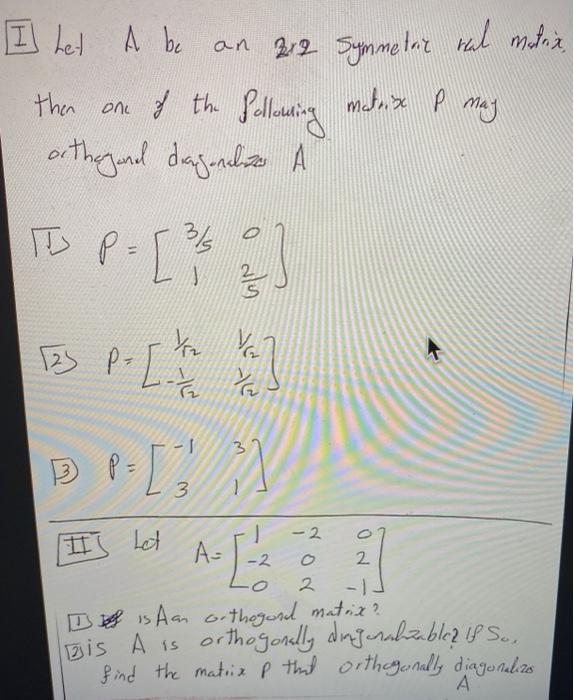 I Let A be an 2×2 Symmetric real matrix,
then one of the following matrix P may
orthogonal diagonalizes A
1 P = [ 3/5 0
1 2/5 ]
2 P = [ 1/√2 1/√2
-1/√2 1/√2 ]
3 P = [ -1 3
3 1 ]
II Let A = [ 1 -2 0
-2 0 2
0 2 -1 ]
1 is A an orthogonal matrix?
2 is A is orthogonally diagonalizable? If So,
find the matrix P that orthogonally diagonalizes
A